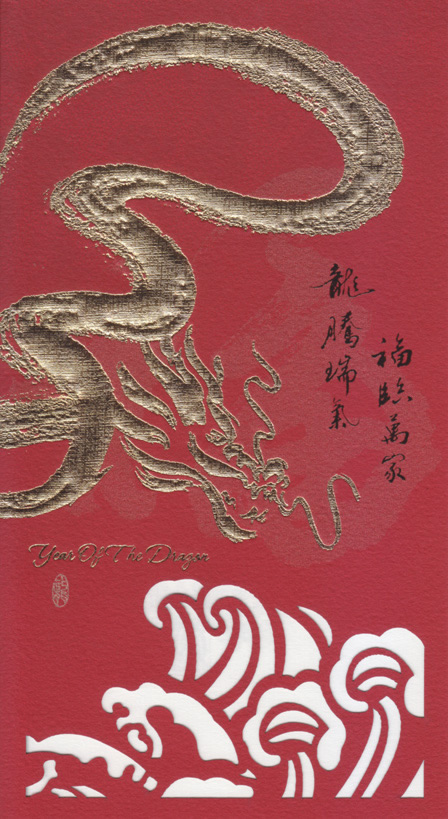 龍騰瑞氣
福臨萬家
Year Of The Dragon